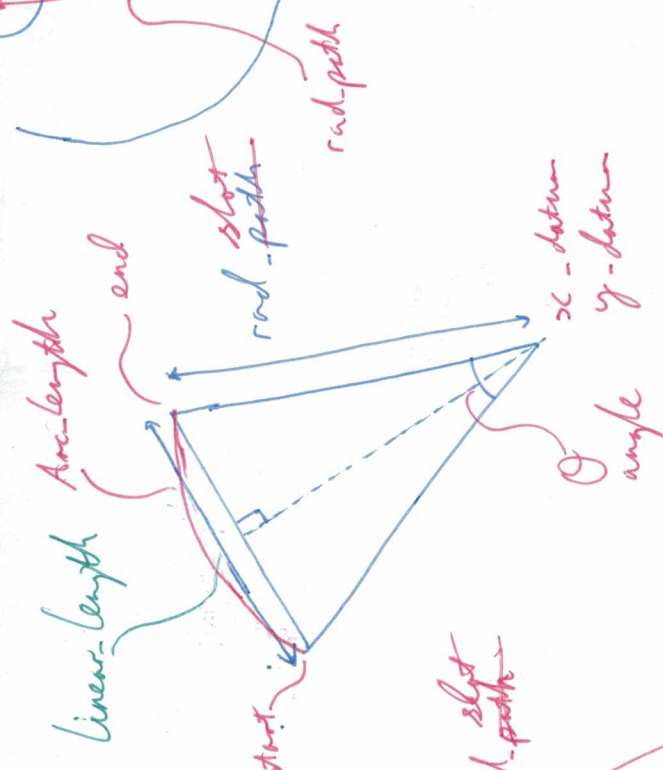 rad_path
slot
rad_path
end
Arc_length
Linear_length
x-datum
y-datum
θ
angle
slot
path